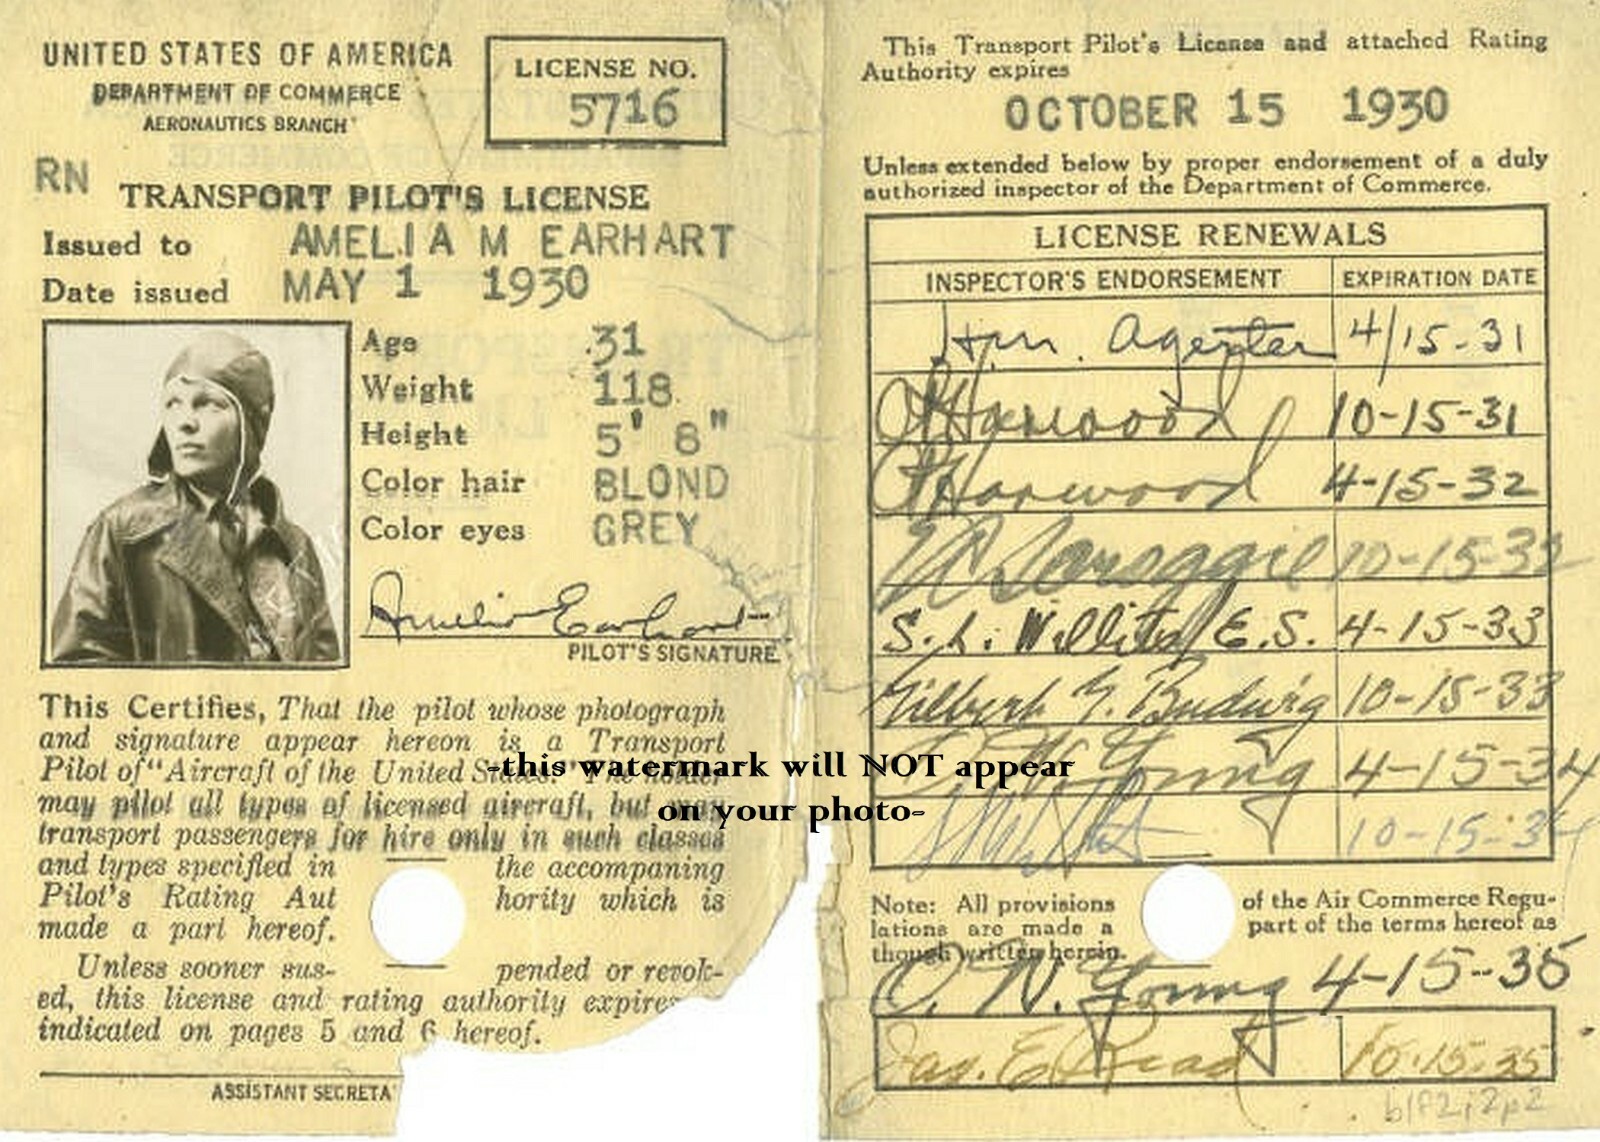 UNITED STATES OF AMERICA
DEPARTMENT OF COMMERCE
AERONAUTICS BRANCH
LICENSE NO.
5716
RN
TRANSPORT PILOT'S LICENSE
Issued to AMELIA M EARHART
Date issued MAY 1 1930
Age 31
Weight 118
Height 5' 8"
Color hair BLOND
Color eyes GREY
Amelia Earhart
PILOT'S SIGNATURE
This Certifies, That the pilot whose photograph
and signature appear hereon is a Transport
Pilot of "Aircraft of the United States." The holder
may pilot all types of licensed aircraft, but may
transport passengers for hire only in such classes
and types specified in the accompaning
Pilot's Rating Aut hority which is
made a part hereof.
Unless sooner sus- pended or revok-
ed, this license and rating authority expires
indicated on pages 5 and 6 hereof.
ASSISTANT SECRETA
This Transport Pilot's License and attached Rating
Authority expires
OCTOBER 15 1930
Unless extended below by proper endorsement of a duly
authorized inspector of the Department of Commerce.
LICENSE RENEWALS
INSPECTOR'S ENDORSEMENT EXPIRATION DATE
4/15-31
Harwood 10-15-31
Harwood 4-15-32
Scroggie 10-15-32
S. L. Willits E.S. 4-15-33
Gilbert G. Budwig 10-15-33
Young 4-15-34
10-15-34
Note: All provisions of the Air Commerce Regu-
lations are made a part of the terms hereof as
though written herein.
O. W. Young 4-15-35
Jas. E. Read 10-15-35
b1f2i2p2
-this watermark will NOT appear
on your photo-